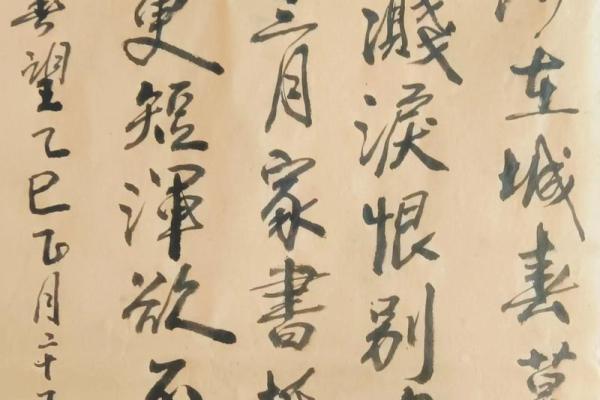 在城春草
濺淚恨別
三月家書抵
更短渾欲不
春望乙巳正月二十